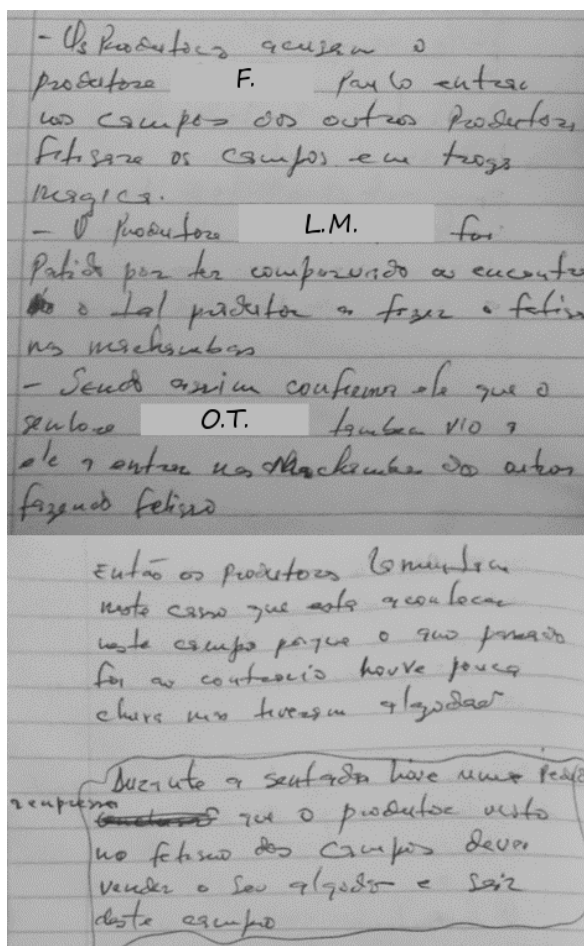 - Os Produtores acusam o
produtore F. Paulo entrar
nos campos dos outros Produtores
fetisare os campos em troga
magica.
- O Produtore L.M. foi
Patido por ter comparado ao encontro
o tal produtor a fazer o fetiso
nas machambas
- Sendo assim confirmo ele que o
senhore O.T. tambem vio a
ele a entrar nas Machambas do outros
fazendo fetisso
Então os produtores lamentam
neste casso que esta acontecer
neste campo porque o ano passado
foi ao contracio houve pouca
chuva mas tiveram algodão
Durante a sentada hove uma
a empresa que o produtor visto
no fetismo dos campos dever
vender o seu algodão e sair
deste campo